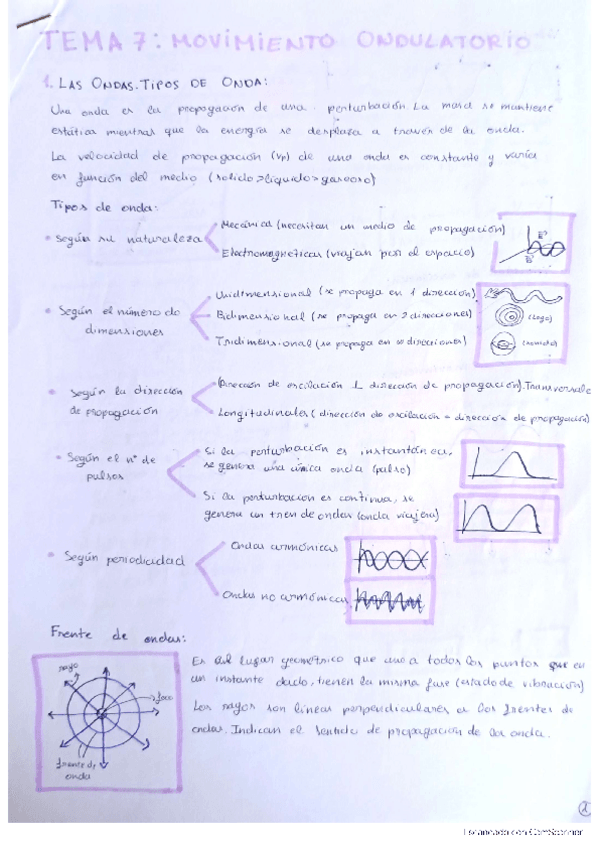 TEMA 7: MOVIMIENTO ONDULATORIO
1. LAS ONDAS. TIPOS DE ONDA:
Una onda es la propagación de una perturbación. La masa se mantiene
estática mientras que la energía se desplaza a través de la onda.
La velocidad de propagación (vp) de una onda es constante y varía
en función del medio (solido>líquido>gaseoso)
Tipos de onda:
• Según su naturaleza
Mecánica (necesitan un medio de propagación)
Electromagnéticas (viajan por el espacio)
• Según el número de
dimensiones
Unidimensional (se propaga en 1 dirección)
Bidimensional (se propaga en 2 direcciones)
(Lago)
Tridimensional (se propaga en direcciones)
• Según la dirección
de propagación
(Dirección de oscilación ⊥ dirección de propagación). Transversales
Longitudinales (dirección de oscilación = dirección de propagación)
• Según el nº de
pulsos
Si la perturbación es instantánea,
se genera una única onda (pulso)
Si la perturbación es continua, se
genera un tren de ondas (onda viajera)
• Según periodicidad
Ondas armónicas
Ondas no armónicas
Frente de ondas:
rayo
foco
frente de
onda
Es el lugar geométrico que une a todos los puntos que en
un instante dado, tienen la misma fase (estado de vibración)
Los rayos son líneas perpendiculares a los frentes de
ondas. Indican el sentido de propagación de la onda.
Escaneado con CamScanner